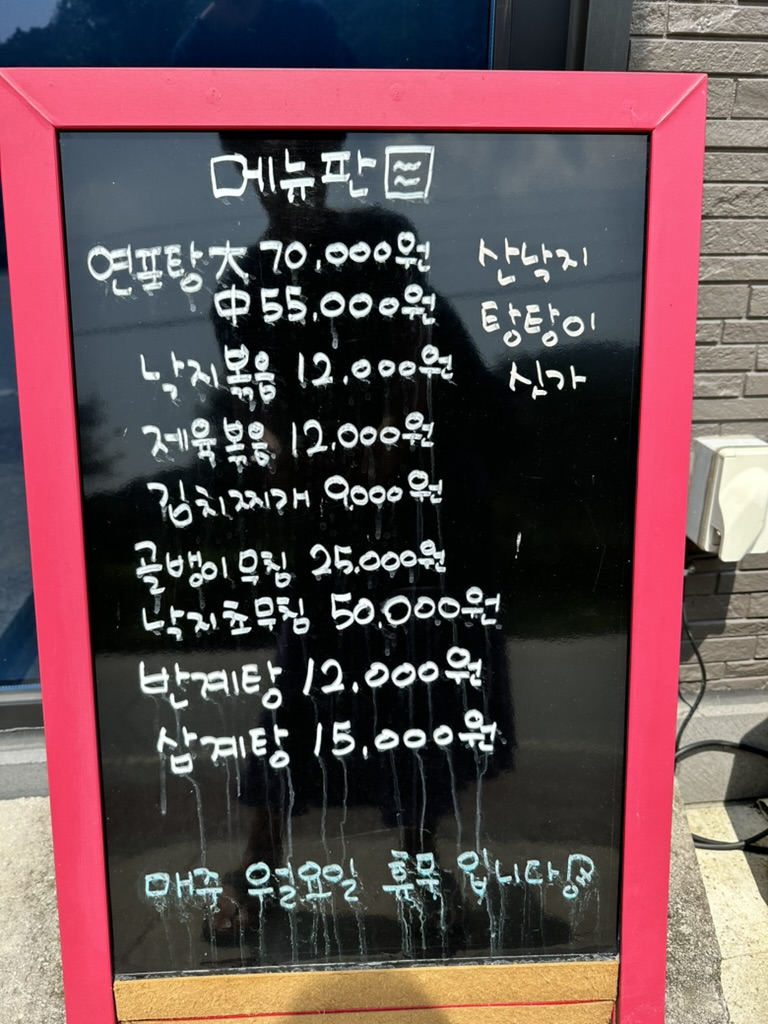 메뉴판
연포탕 大 70,000원
中 55,000원
낙지볶음 12,000원
제육볶음 12,000원
김치찌개 9,000원
골뱅이무침 25,000원
낙지초무침 50,000원
반계탕 12,000원
삼계탕 15,000원
산낙지
탕탕이
싯가
매주 월요일 휴무 입니다